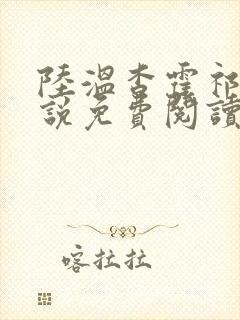 陸溫杳霍祁
說免費閱讀
喀拉拉